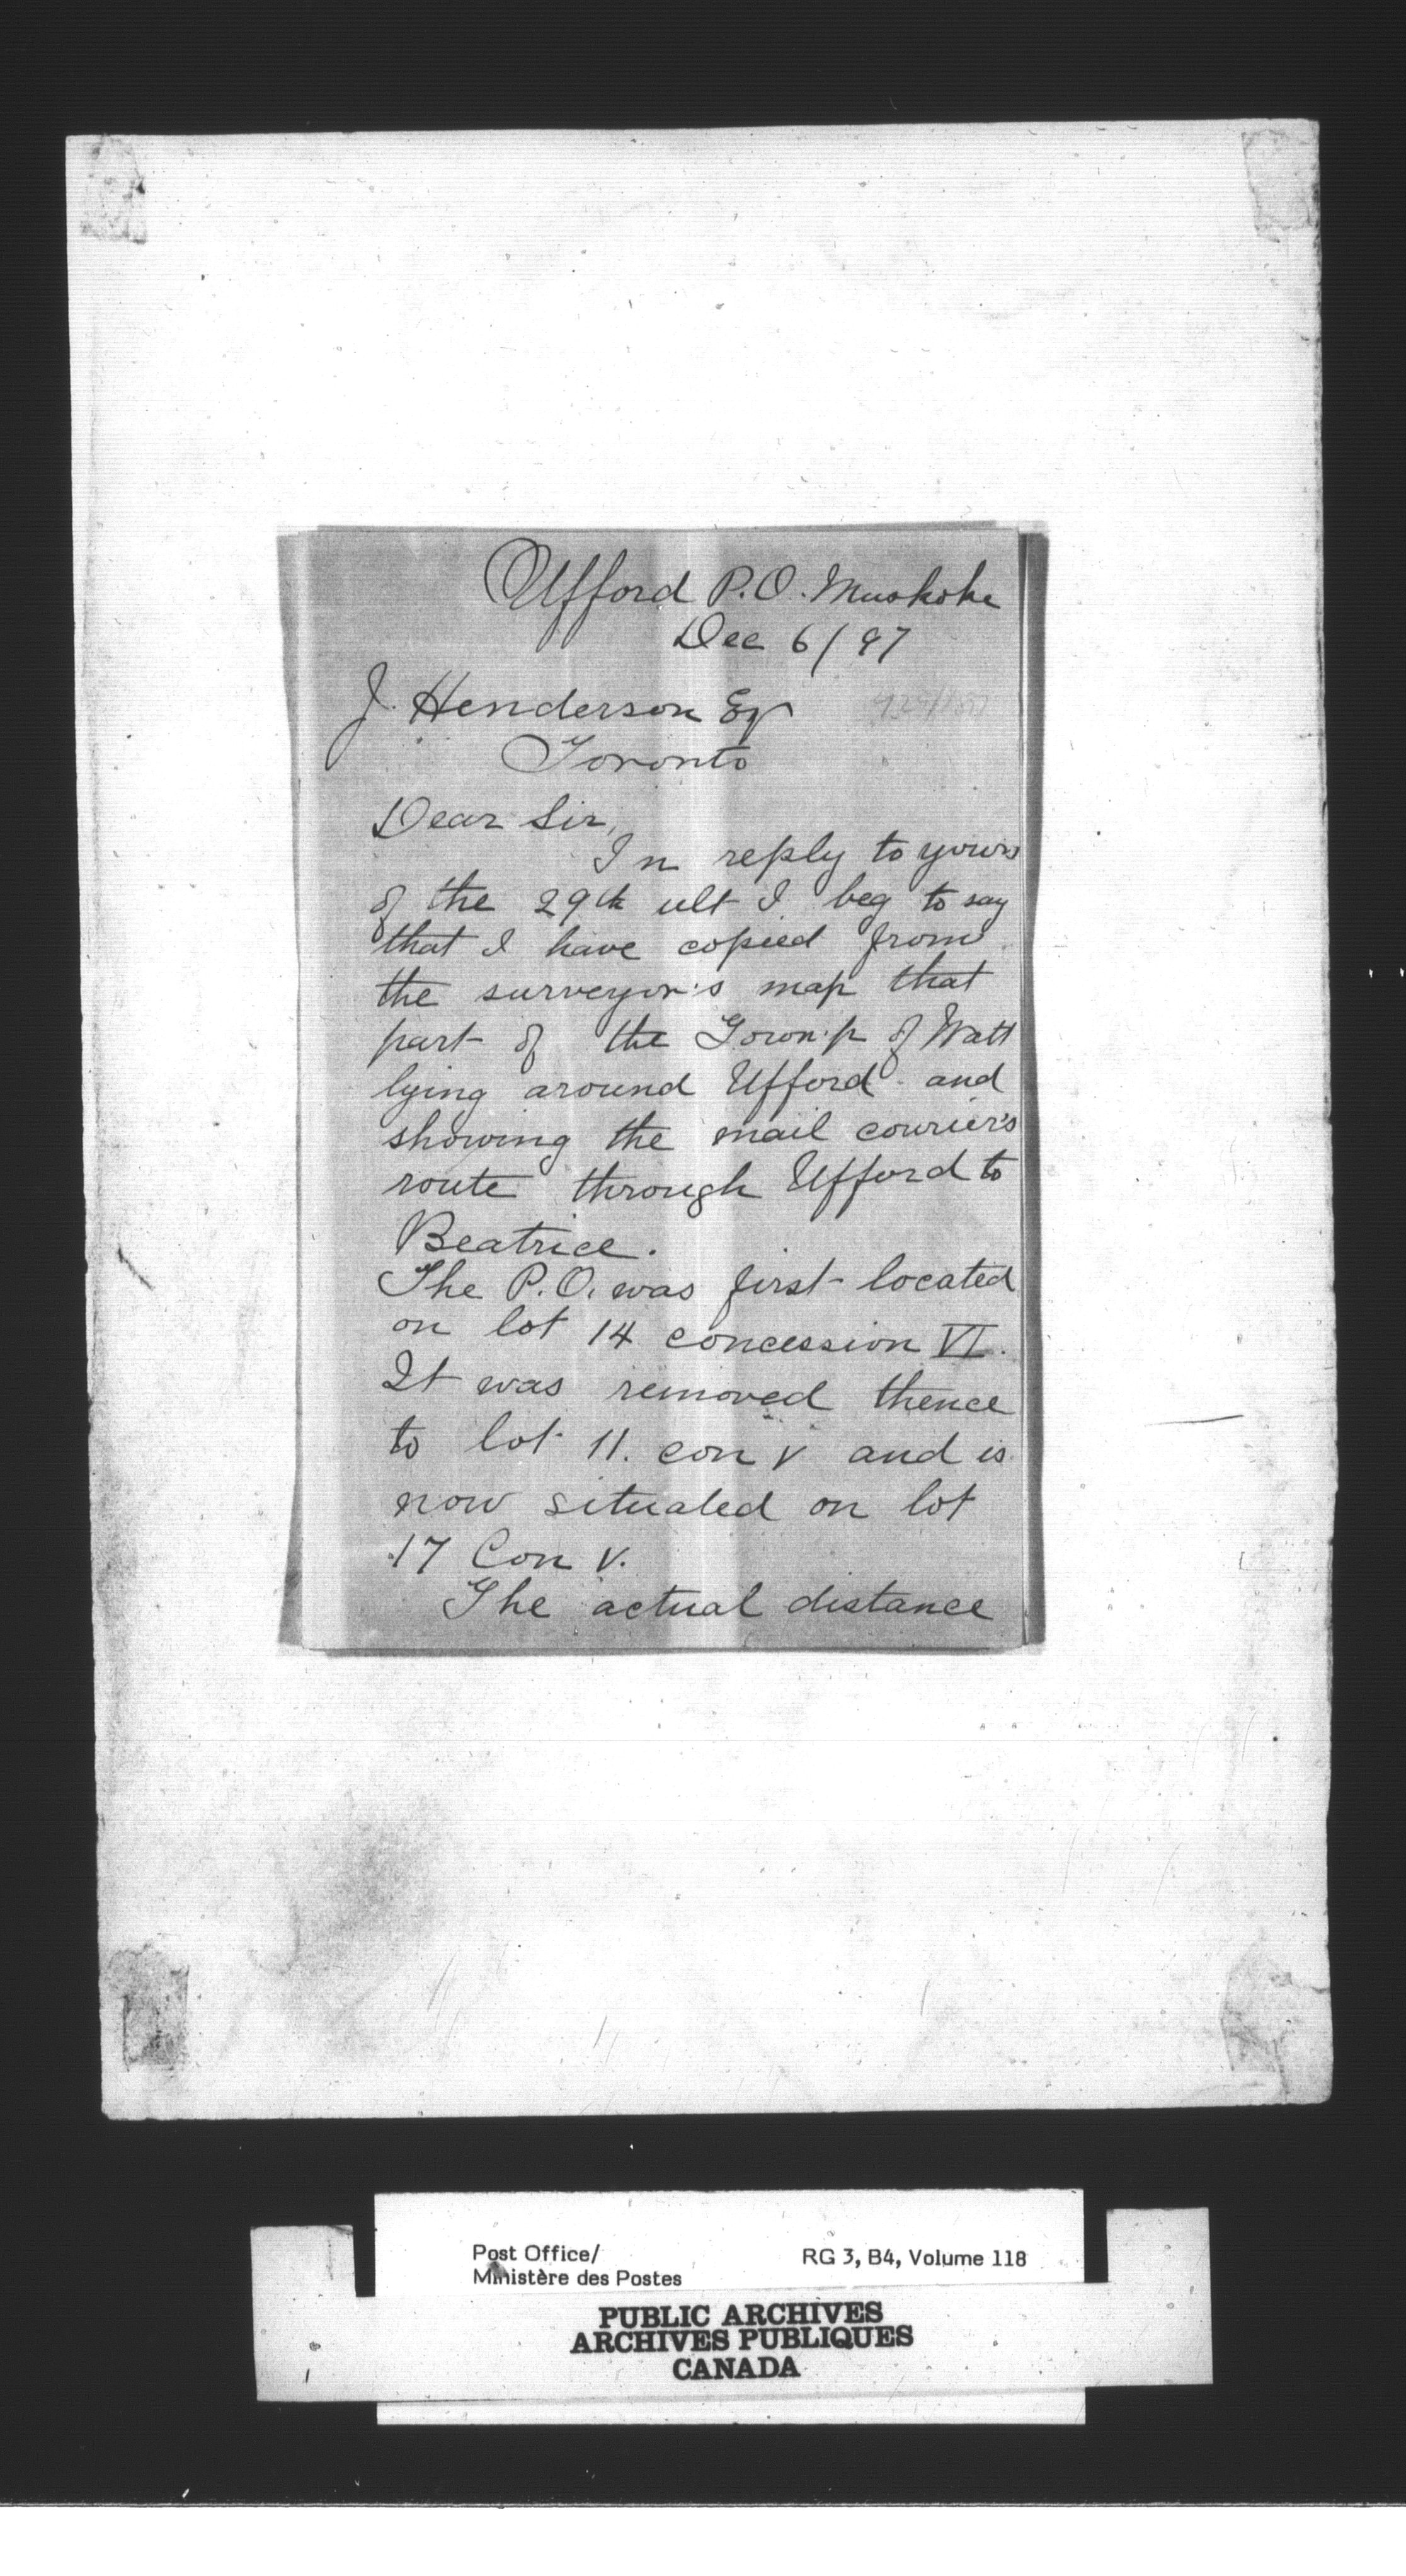 Ufford P.O. Muskoka
Dec 6/97
J. Henderson Esq
Toronto
Dear Sir,
In reply to yours
of the 29th ult I beg to say
that I have copied from
the surveyor's map that
part of the Town'p of Watt
lying around Ufford and
showing the mail courier's
route through Ufford to
Beatrice.
The P.O. was first located
on lot 14 concession VI.
It was removed thence
to lot 11. con V and is
now situated on lot
17 Con V.
The actual distance
Post Office/
Ministère des Postes
RG 3, B4, Volume 118
PUBLIC ARCHIVES
ARCHIVES PUBLIQUES
CANADA